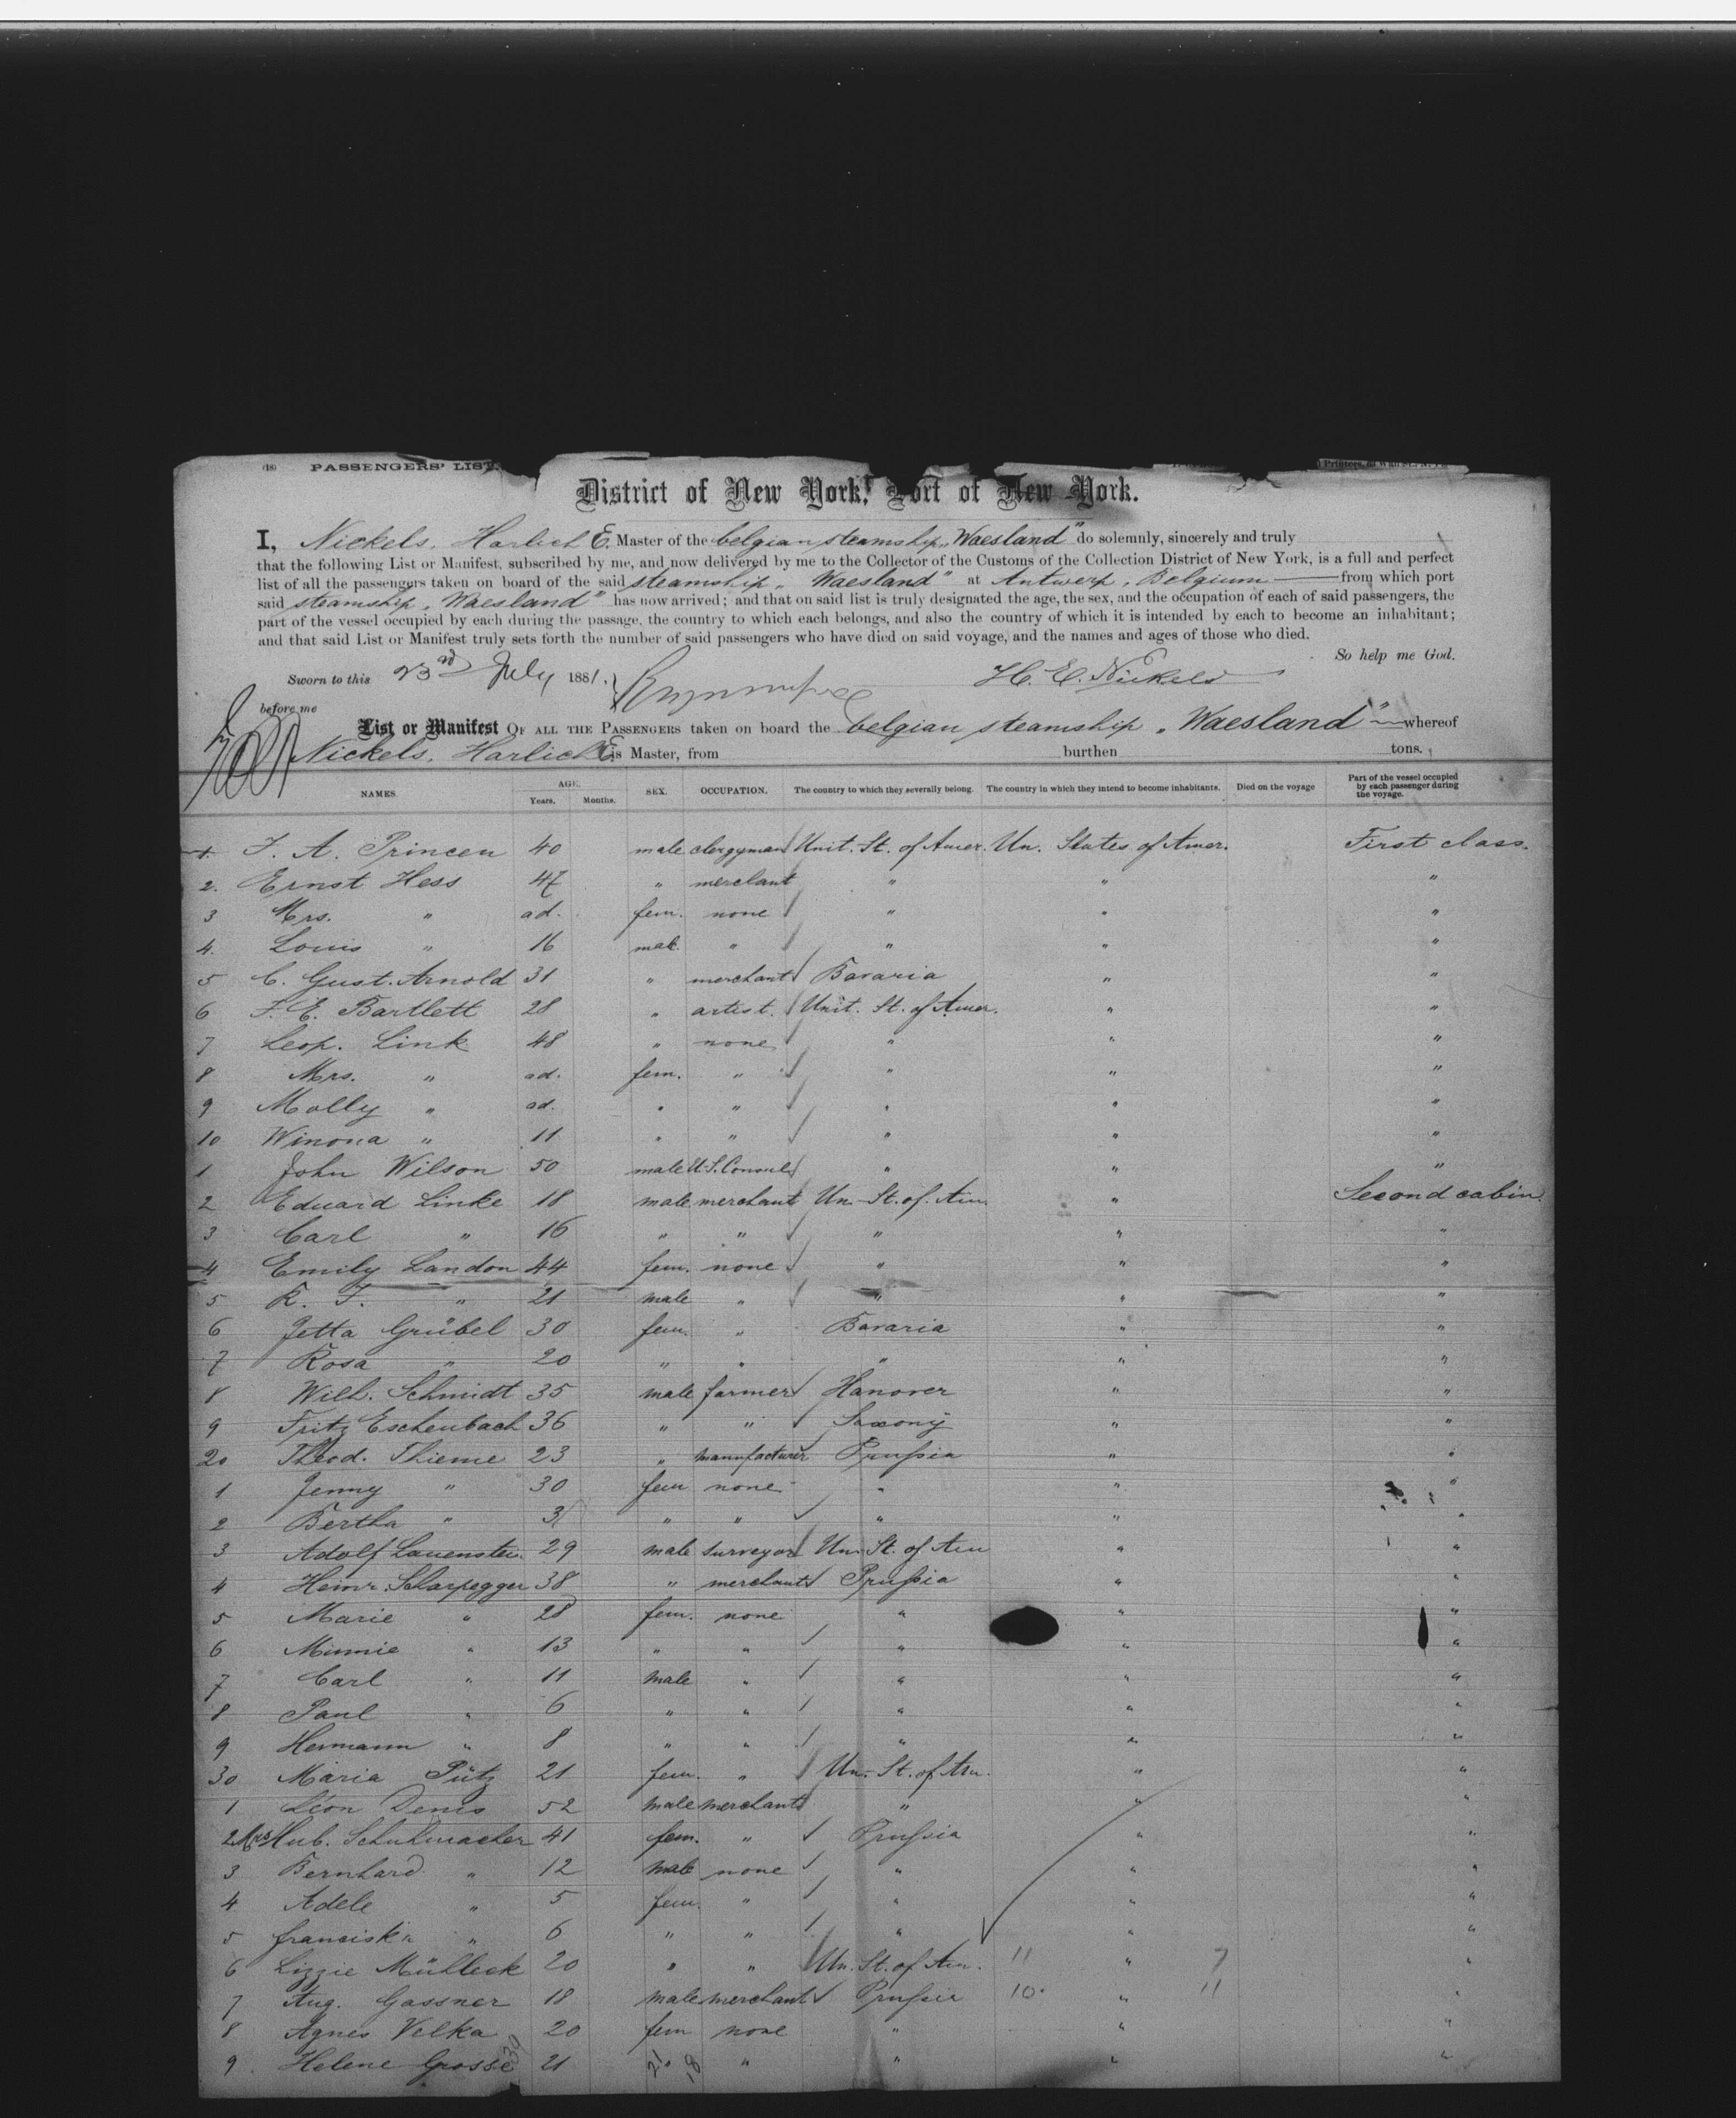 (18) PASSENGERS' LIST.
District of New York, Port of New York.
I, Nickels, Harlich E. Master of the belgian steamship „Waesland" do solemnly, sincerely and truly
that the following List or Manifest, subscribed by me, and now delivered by me to the Collector of the Customs of the Collection District of New York, is a full and perfect
list of all the passengers taken on board of the said steamship „Waesland" at Antwerp, Belgium from which port
said steamship „Waesland" has now arrived; and that on said list is truly designated the age, the sex, and the occupation of each of said passengers, the
part of the vessel occupied by each during the passage, the country to which each belongs, and also the country of which it is intended by each to become an inhabitant;
and that said List or Manifest truly sets forth the number of said passengers who have died on said voyage, and the names and ages of those who died.
So help me God.
Sworn to this 23rd July 1881. H. E. Nickels
before me
List or Manifest OF ALL THE PASSENGERS taken on board the belgian steamship „Waesland" whereof
Nickels, Harlich E. is Master, from burthen tons.
NAMES. AGE. Years. Months. SEX. OCCUPATION. The country to which they severally belong. The country in which they intend to become inhabitants. Died on the voyage Part of the vessel occupied by each passenger during the voyage.
1. F. A. Princen 40 male clergyman Unit. St. of Amer. Un. States of Amer. First class.
2. Ernst Hess 47 " merchant " " "
3 Mrs. " ad. fem. none " " "
4. Louis " 16 mal. " " " "
5 C. Gust. Arnold 31 " merchant Bavaria " "
6 F. E. Bartlett 28 " artist. Unit. St. of Amer. " "
7 Leop. Link 48 " none " " "
8 Mrs. " ad. fem. " " " "
9 Molly " ad. " " " " "
10 Winona " 11 " " " " "
1 John Wilson 50 male U.S. Consul " " "
2 Eduard Linke 18 male merchant Un. St. of. Am. " Second cabin.
3 Carl " 16 " " " " "
4 Emily Landon 44 fem. none " " "
5 R. F. " 21 male " " " "
6 Jetta Grübel 30 fem. " Bavaria " "
7 Rosa " 20 " " " " "
8 Wilh. Schmidt 35 male farmer Hanover " "
9 Fritz Eschenbach 36 " " Saxony " "
20 Theod. Thieme 23 " manufacturer Prussia " "
1 Jenny " 30 fem none " " "
2 Bertha " " " " " "
3 Adolf Lauenstein 29 male surveyor Un. St. of Am " "
4 Heinr. Scharpegger 38 " merchant Prussia " "
5 Marie " 28 fem. none " " "
6 Minnie " 13 " " " " "
7 Carl " 11 male " " " "
8 Paul " 6 " " " " "
9 Hermann " 8 " " " " "
30 Maria Pütz 21 fem. " Un. St. of Am. " "
1 Léon Denis 52 male merchant " " "
2 Mrs Hub. Schuhmacher 41 fem. " Prussia " "
3 Bernhard " 12 male none " " "
4 Adele " 5 fem. " " " "
5 Franciska " 6 " " " " "
6 Lizzie Mülleck 20 " " Un. St. of Am. 11 " 7 "
7 Aug. Gassner 18 male merchant Prussia 10 " 11 "
8 Agnes Velka 20 fem none " " "
9 Helene Grosse 21 " " " " "